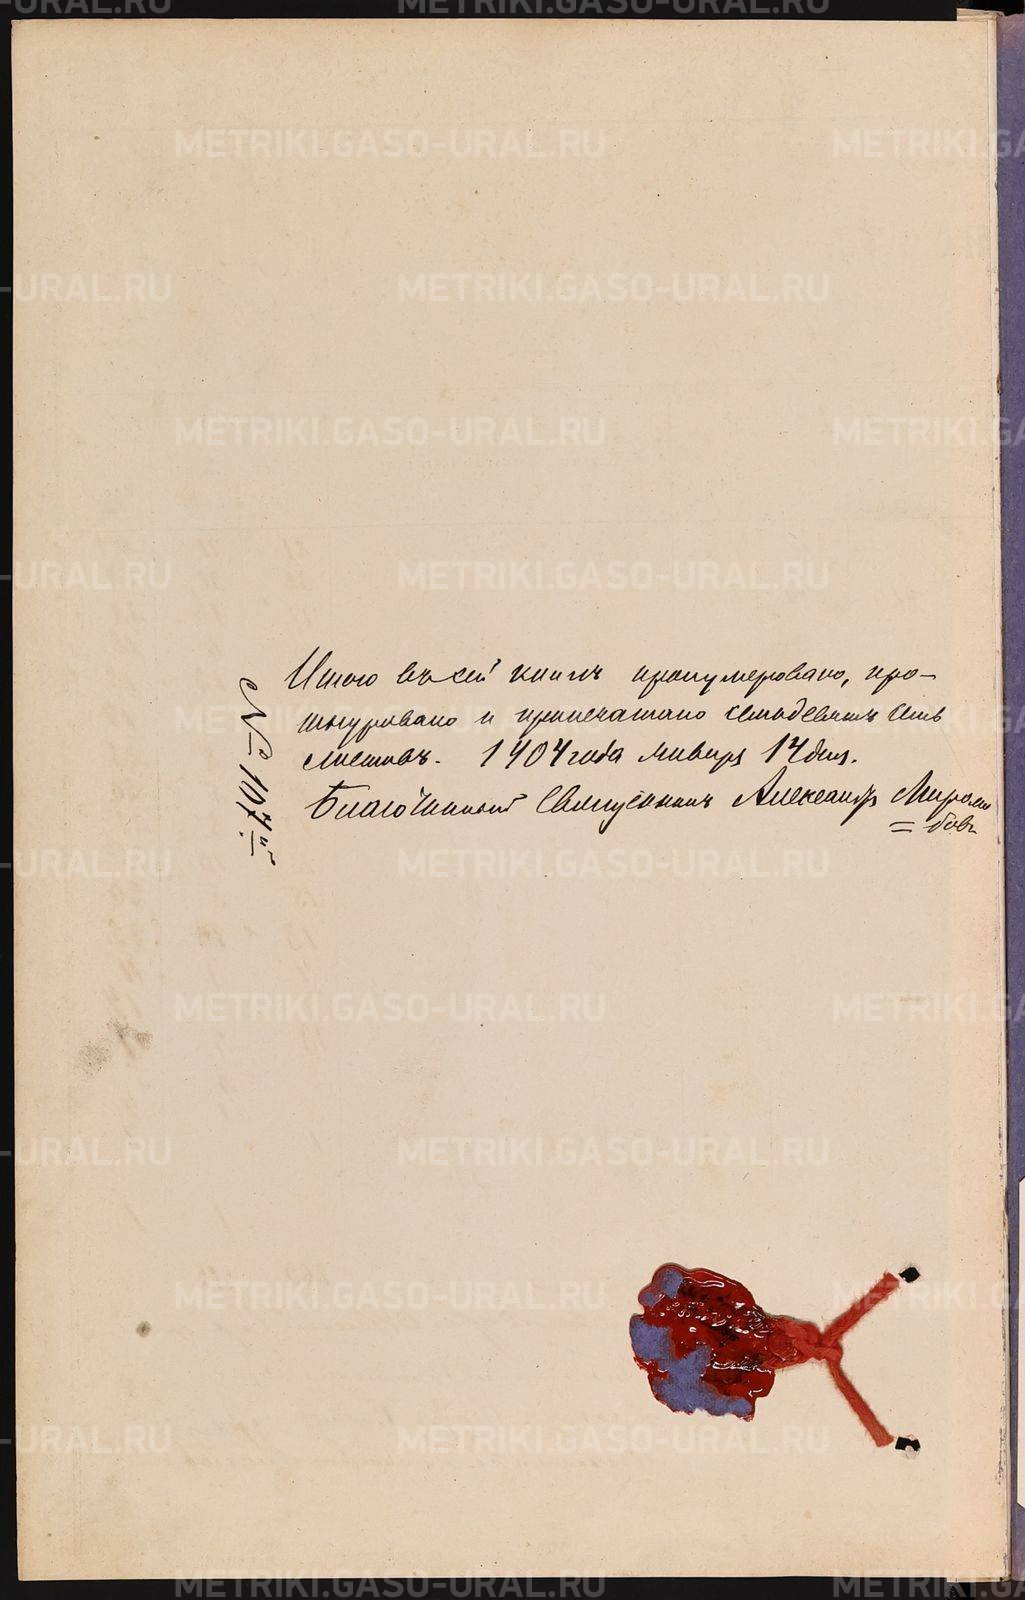 Итого въ сей книгѣ пронумеровано, про-
шнуровано и припечатано семьдесятъ семь
листовъ. 1904 года января 14 дня.
Благочинный Священникъ Александръ Миролю
= бовъ
№ 107й
METRIKI.GASO-URAL.RU